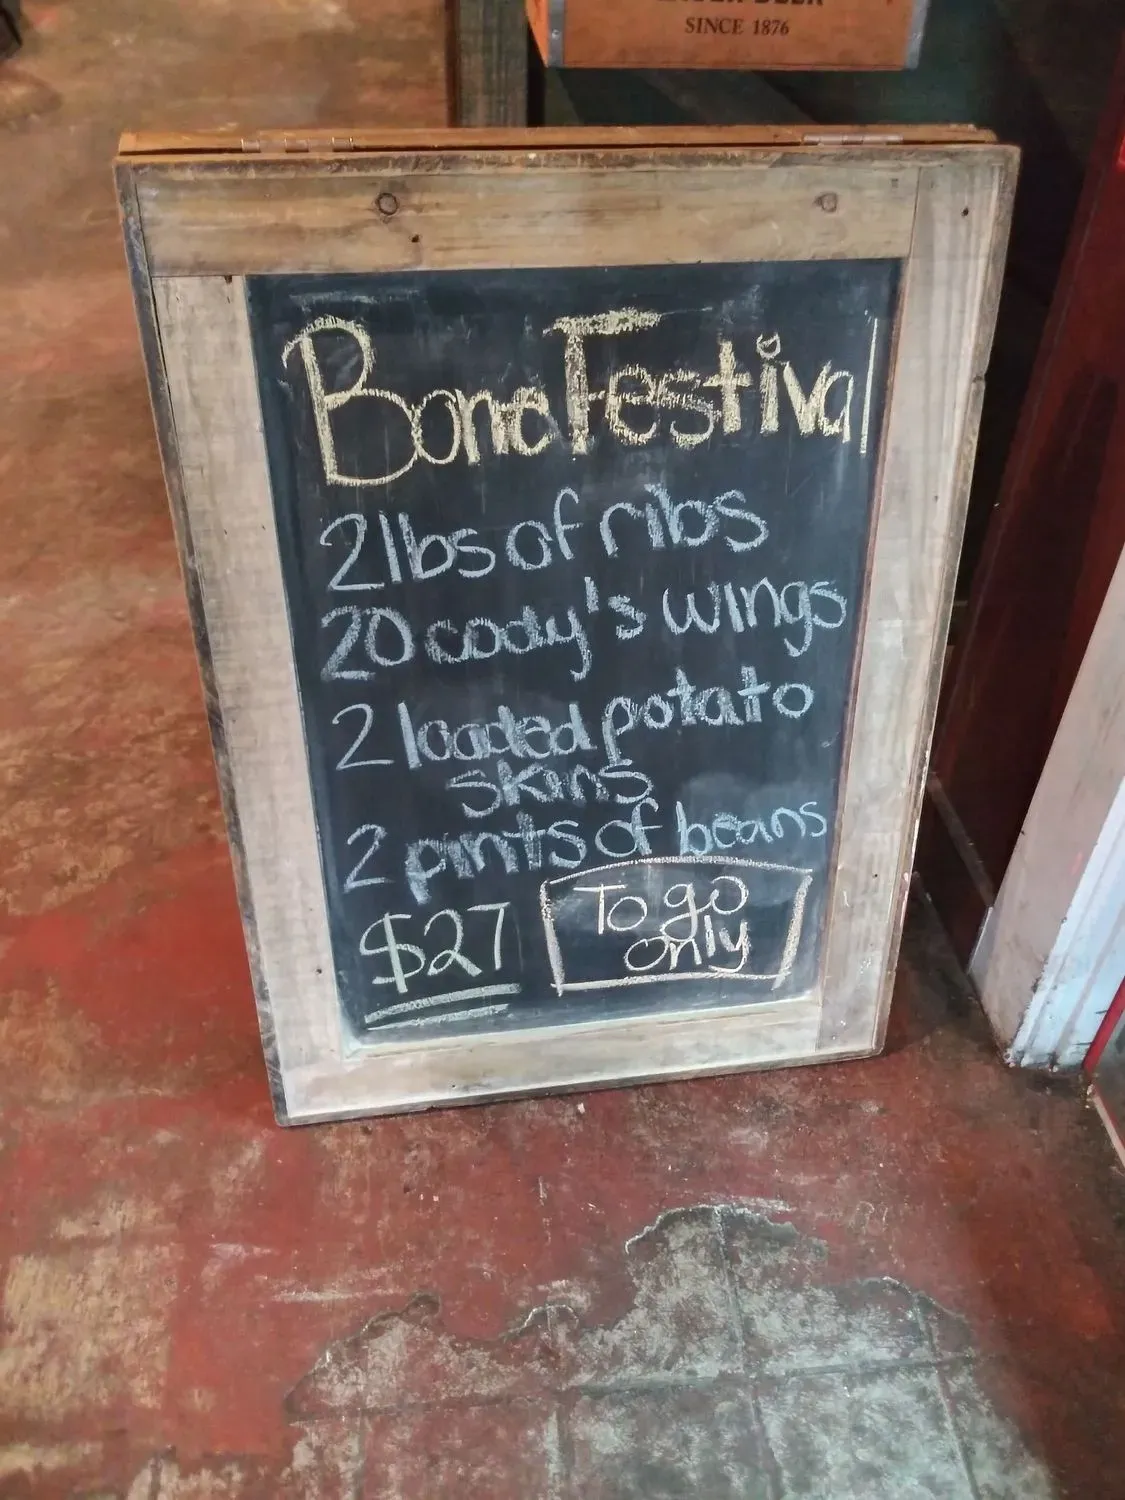 SINCE 1876
Bone Festival
2 lbs of ribs
20 cody's wings
2 loaded potato
skins
2 pints of beans
$27
To go
only